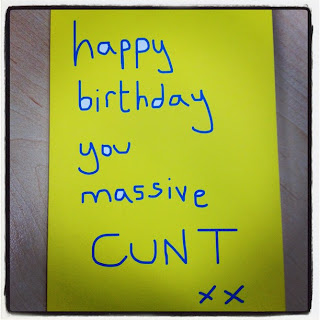 happy
birthday
you
massive
CUNT
xx